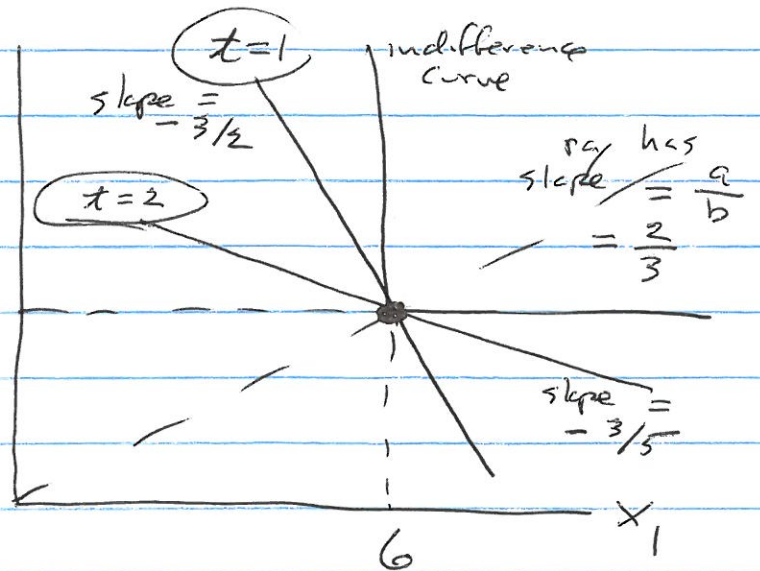 t=1
indifference
curve
slope =
- 3/2
t=2
ray has
slope = a/b
= 2/3
slope =
- 3/5
6
x1